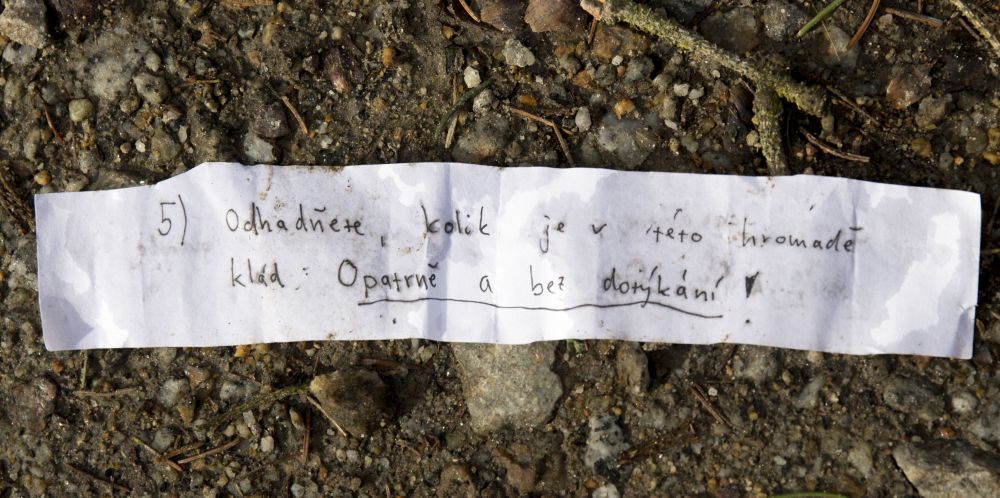 5) Odhadňete, kolik je v této hromadě
klád. Opatrně a bez dotýkání!